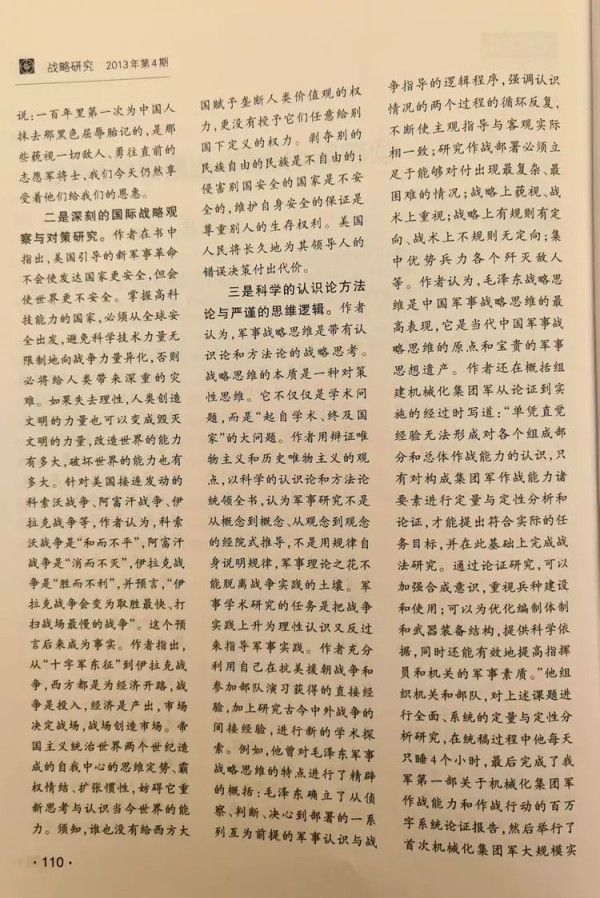 战略研究 2013年第4期
说：一百年里第一次为中国人
抹去那黑色屈辱胎记的，是那
些藐视一切敌人、勇往直前的
志愿军将士，我们今天仍然享
受着他们给我们的恩惠。
二是深刻的国际战略观
察与对策研究。作者在书中
指出，美国引导的新军事革命
不会使发达国家更安全，但会
使世界更不安全。掌握高科
技能力的国家，必须从全球安
全出发，避免科学技术力量无
限制地向战争力量异化，否则
必将给人类带来深重的灾
难。如果失去理性，人类创造
文明的力量也可以变成毁灭
文明的力量，改造世界的能力
有多大，破坏世界的能力也有
多大。针对美国接连发动的
科索沃战争、阿富汗战争、伊
拉克战争等，作者认为，科索
沃战争是“和而不平”，阿富汗
战争是“消而不灭”，伊拉克战
争是“胜而不利”，并预言，“伊
拉克战争会变为取胜最快、打
扫战场最慢的战争”。这个预
言后来成为事实。作者指出，
从“十字军东征”到伊拉克战
争，西方都是为经济开路，战
争是投入，经济是产出，市场
决定战场，战场创造市场。帝
国主义统治世界两个世纪造
成的自我中心的思维定势、霸
权情结、扩张惯性，妨碍它重
新思考与认识当今世界的能
力。须知，谁也没有给西方大
国赋予垄断人类价值观的权
力，更没有授予它们任意给别
国下定义的权力。剥夺别的
民族自由的民族是不自由的；
侵害别国安全的国家是不安
全的，维护自身安全的保证是
尊重别人的生存权利。美国
人民将长久地为其领导人的
错误决策付出代价。
三是科学的认识论方法
论与严谨的思维逻辑。作者
认为，军事战略思维是带有认
识论和方法论的战略思考。
战略思维的本质是一种对策
性思维。它不仅仅是学术问
题，而是“起自学术、终及国
家”的大问题。作者用辩证唯
物主义和历史唯物主义的观
点，以科学的认识论和方法论
统领全书，认为军事研究不是
从概念到概念、从观念到观念
的经院式推导，不是用规律自
身说明规律，军事理论之花不
能脱离战争实践的土壤。军
事学术研究的任务是把战争
实践上升为理性认识又反过
来指导军事实践。作者充分
利用自己在抗美援朝战争和
参加部队演习获得的直接经
验，加上研究古今中外战争的
间接经验，进行新的学术探
索。例如，他曾对毛泽东军事
战略思维的特点进行了精辟
的概括：毛泽东确立了从侦
察、判断、决心到部署的一系
列互为前提的军事认识与战
争指导的逻辑程序，强调认识
情况的两个过程的循环反复，
不断使主观指导与客观实际
相一致；研究作战部署必须立
足于能够对付出现最复杂、最
困难的情况；战略上藐视、战
术上重视；战略上有规则有定
向、战术上不规则无定向；集
中优势兵力各个歼灭敌人
等。作者认为，毛泽东战略思
维是中国军事战略思维的最
高表现，它是当代中国军事战
略思维的原点和宝贵的军事
思想遗产。作者还在概括组
建机械化集团军从论证到实
施的经过时写道：“单凭直觉
经验无法形成对各个组成部
分和总体作战能力的认识，只
有对构成集团军作战能力诸
要素进行定量与定性分析和
论证，才能提出符合实际的任
务目标，并在此基础上完成战
法研究。通过论证研究，可以
加强合成意识，重视兵种建设
和使用；可以为优化编制体制
和武器装备结构，提供科学依
据，同时还能有效地提高指挥
员和机关的军事素质。”他组
织机关和部队，对上述课题进
行全面、系统的定量与定性分
析研究，在统稿过程中他每天
只睡4个小时，最后完成了我
军第一部关于机械化集团军
作战能力和作战行动的百万
字系统论证报告，然后举行了
首次机械化集团军大规模实
·110·